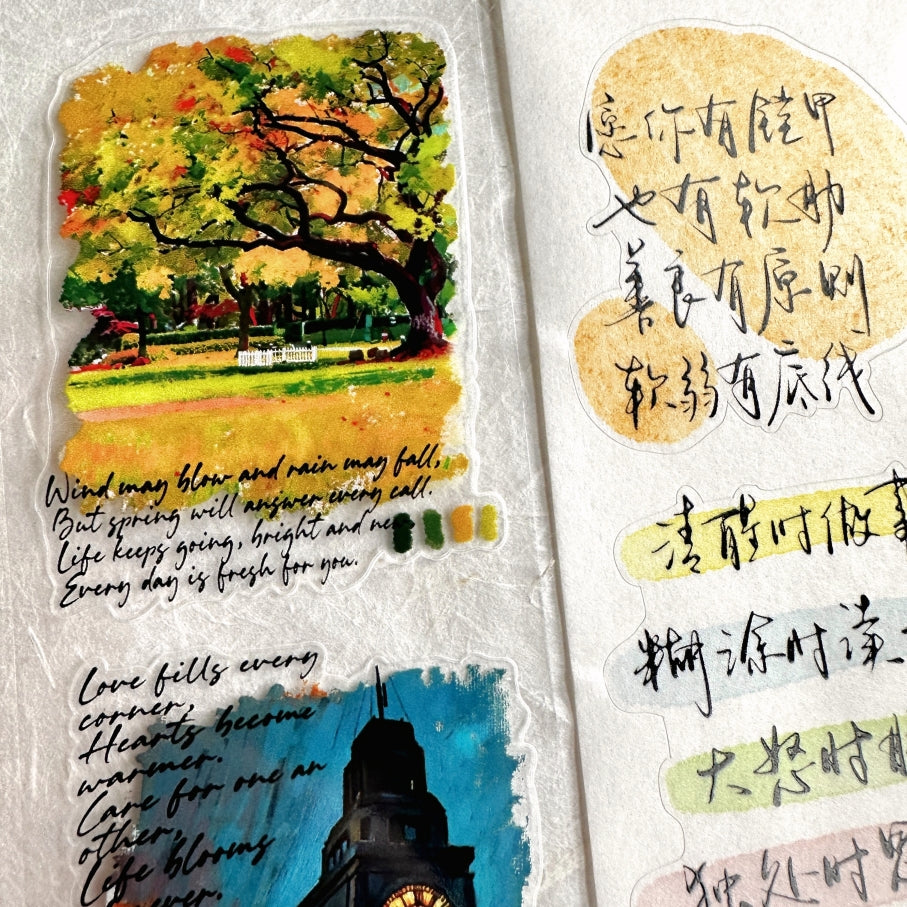 Wind may blow and rain may fall,
But spring will answer every call.
Life keeps going, bright and new
Every day is fresh for you.
Love fills every
corner,
Hearts become
warmer.
Care for one an
other,
Life blooms
ever.
愿你有铠甲
也有软肋
善良有原则
软弱有底线
清醒时做事
糊涂时读
大怒时
独处时思